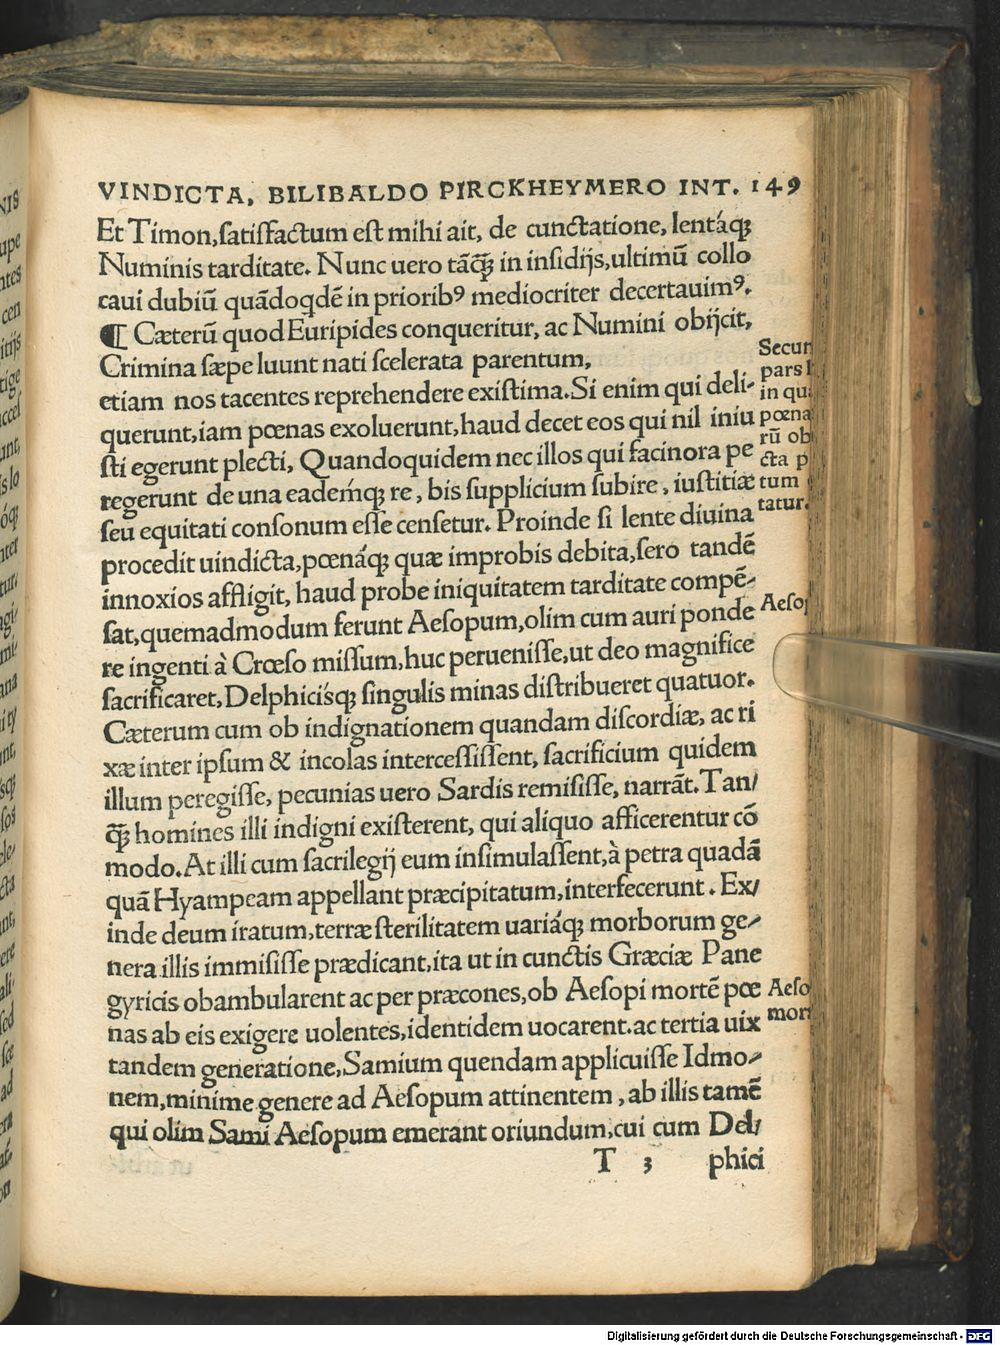 VINDICTA, BILIBALDO PIRCKHEYMERO INT. 149
Et Timon,satisfactum est mihi ait, de cunctatione, lentáq;
Numinis tarditate. Nunc uero tāq̄; in insidijs,ultimū collo
caui dubiū quādoqdē in priorib⁹ mediocriter decertauim⁹.
¶ Cæterū quod Euripides conqueritur, ac Numini obijcit,
Crimina sæpe luunt nati scelerata parentum,
etiam nos tacentes reprehendere existima.Si enim qui deli-
querunt,iam pœnas exoluerunt,haud decet eos qui nil iniu
sti egerunt plecti, Quandoquidem nec illos qui facinora pe
regerunt de una eadeḿq; re, bis supplicium subire, iustitiæ
seu equitati consonum esse censetur. Proinde si lente diuina
procedit uindicta,pœnáq; quæ improbis debita,sero tandē
innoxios affligit, haud probe iniquitatem tarditate compē-
sat,quemadmodum ferunt Aesopum,olim cum auri ponde
re ingenti à Crœso missum,huc peruenisse,ut deo magnifice
sacrificaret,Delphicisq́; singulis minas distribueret quatuor.
Cæterum cum ob indignationem quandam discordiæ, ac ri
xæ inter ipsum & incolas intercessissent, sacrificium quidem
illum peregisse, pecunias uero Sardis remisisse, narrāt. Tan/
q̄; homines illi indigni existerent, qui aliquo afficerentur cō
modo.At illi cum sacrilegij eum insimulassent,à petra quadā
quā Hyampeam appellant præcipitatum,interfecerunt. Ex/
inde deum iratum,terræ sterilitatem uariáq; morborum ge-
nera illis immisisse prædicant,ita ut in cunctis Græciæ Pane
gyricis obambularent ac per præcones,ob Aesopi mortē pœ
nas ab eis exigere uolentes,identidem uocarent.ac tertia uix
tandem generatione,Samium quendam applicuisse Idmo-
nem,minime genere ad Aesopum attinentem, ab illis tamē
qui olim Sami Aesopum emerant oriundum,cui cum Del/
T 3 phici
Secun
pars
in qu
pœna
rū ob
cta p
tum
tatur.
Aesop
Aeso
mor
Digitalisierung gefördert durch die Deutsche Forschungsgemeinschaft - DFG